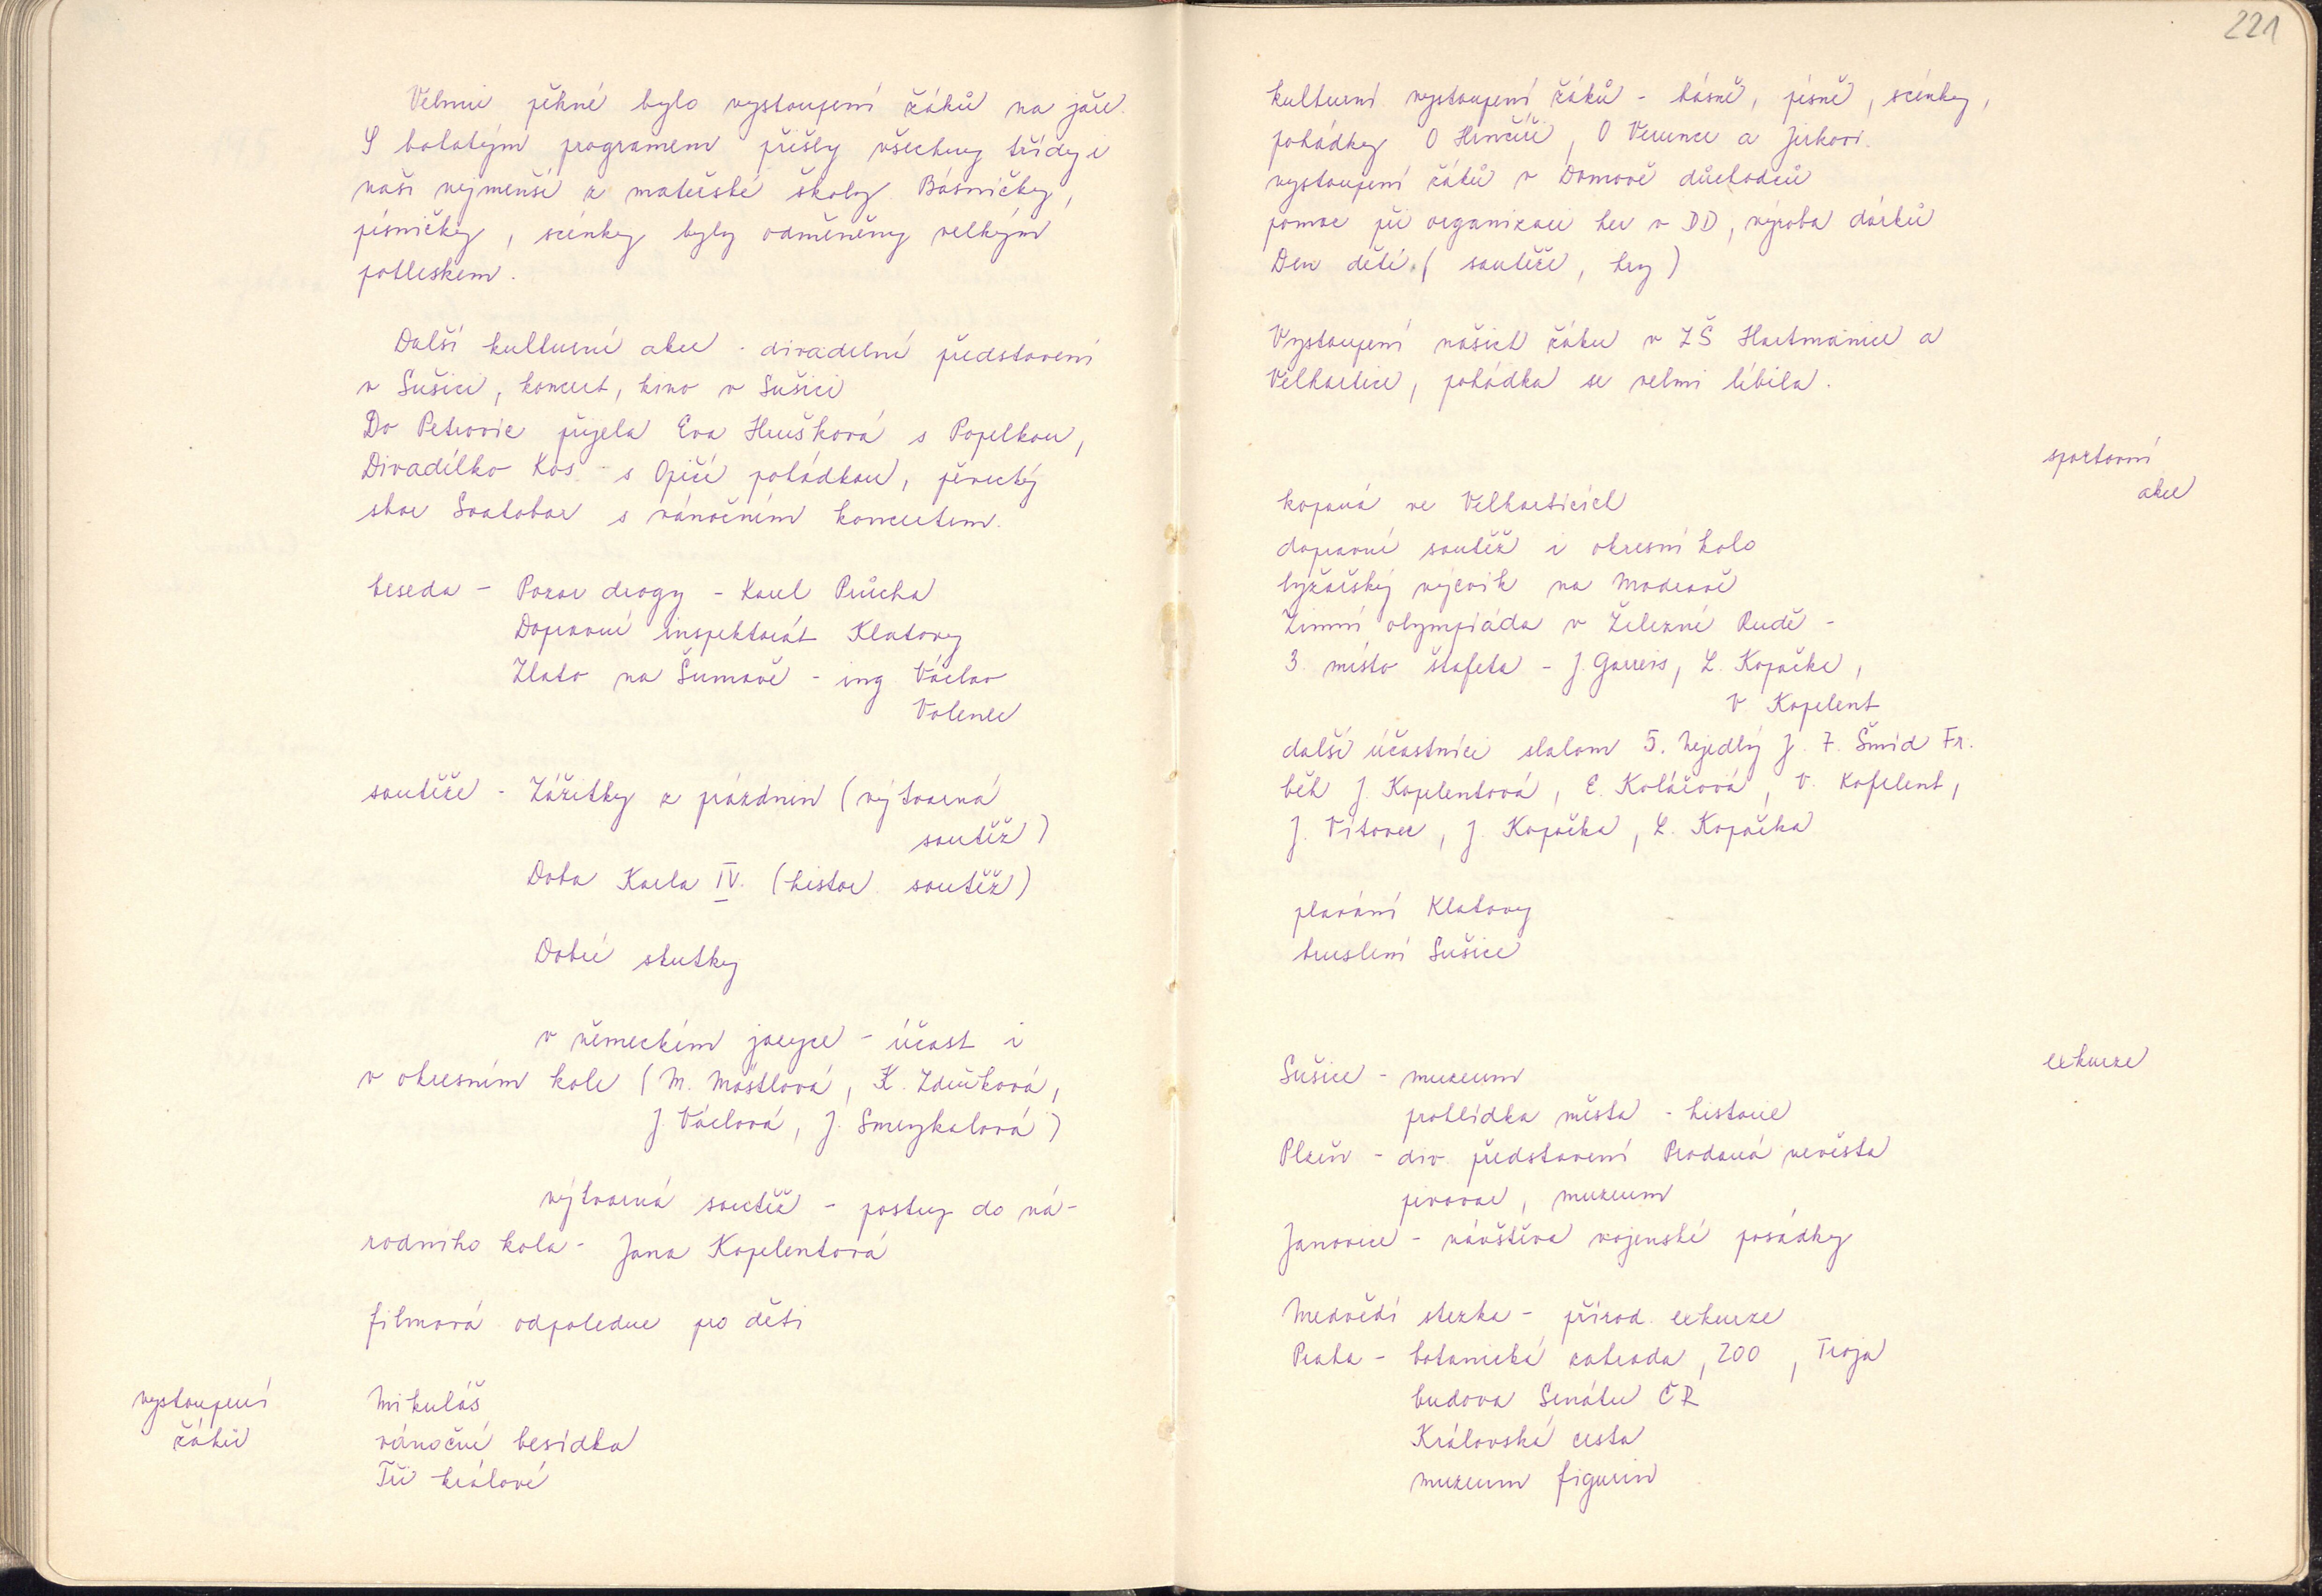 Velmi pěkné bylo vystoupení žáků na jaře.
S bohatým programem přišly všechny třídy i
naši nejmenší z mateřské školy. Básničky,
písničky, scénky byly odměněny velkým
potleskem.
Další kulturní akce - divadelní představení
v Sušici, koncert, kino v Sušici
Do Petrovic přijela Eva Hrušková s Popelkou,
Divadélko Kos - s Opičí pohádkou, pěvecký
sbor Svatobor s vánočním koncertem.
beseda - Pozor drogy - Karel Průcha
Dopravní inspektorát Klatovy
Zlato na Šumavě - ing Václav
Valenec
soutěže - Zážitky z prázdnin (výtvarná
soutěž)
Doba Karla IV. (histor. soutěž)
Dobré skutky
v německém jazyce - účast i
v okresním kole (M. Mostlová, K. Zdeňková,
J. Václová, J. Smrzkalová)
výtvarná soutěž - postup do ná-
rodního kola - Jana Kopelentová
filmová odpoledne pro děti
vystoupení
žáků
Mikuláš
vánoční besídka
Tři králové
221
kulturní vystoupení žáků - básně, písně, scénky,
pohádky O Hrnčíři, O Verunce a Jirkovi.
vystoupení žáků v Domově důchodců
pomoc při organizaci her v DD, výroba dárků
Den dětí (soutěže, hry)
Vystoupení našich žáku v ZŠ Hartmanice a
Velhartice, pohádka se velmi líbila.
sportovní
akce
kopaná ve Velharticích
dopravní soutěž i okresní kolo
lyžařský výcvik na Modravě
Zimní olympiáda v Železné Rudě -
3. místo štafeta - J. Gareis, L. Kopačka,
V Kopelent
další účastníci slalom 5. Nejedlý J. 7. Šmíd Fr.
běh J. Kopelentová, E. Kolářová, V. Kopelent,
J. Vítovec, J. Kopačka, L. Kopačka
plavání Klatovy
bruslení Sušice
exkurze
Sušice - muzeum
prohlídka města - historie
Plzeň - div. představení Prodaná nevěsta
pivovar, muzeum
Janovice - návštěva vojenské posádky
Medvědí stezka - přírod. exkurze
Praha - botanická zahrada, ZOO, Troja
budova Senátu ČR
Královská cesta
muzeum figurin